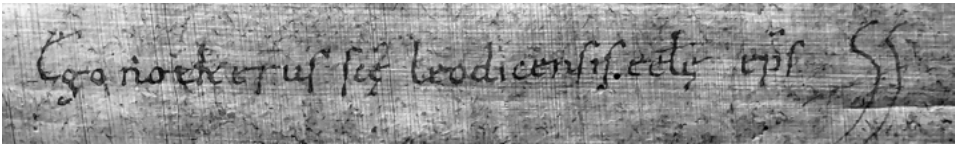 Ego notkerus scę leodicensis. eclę eps SS